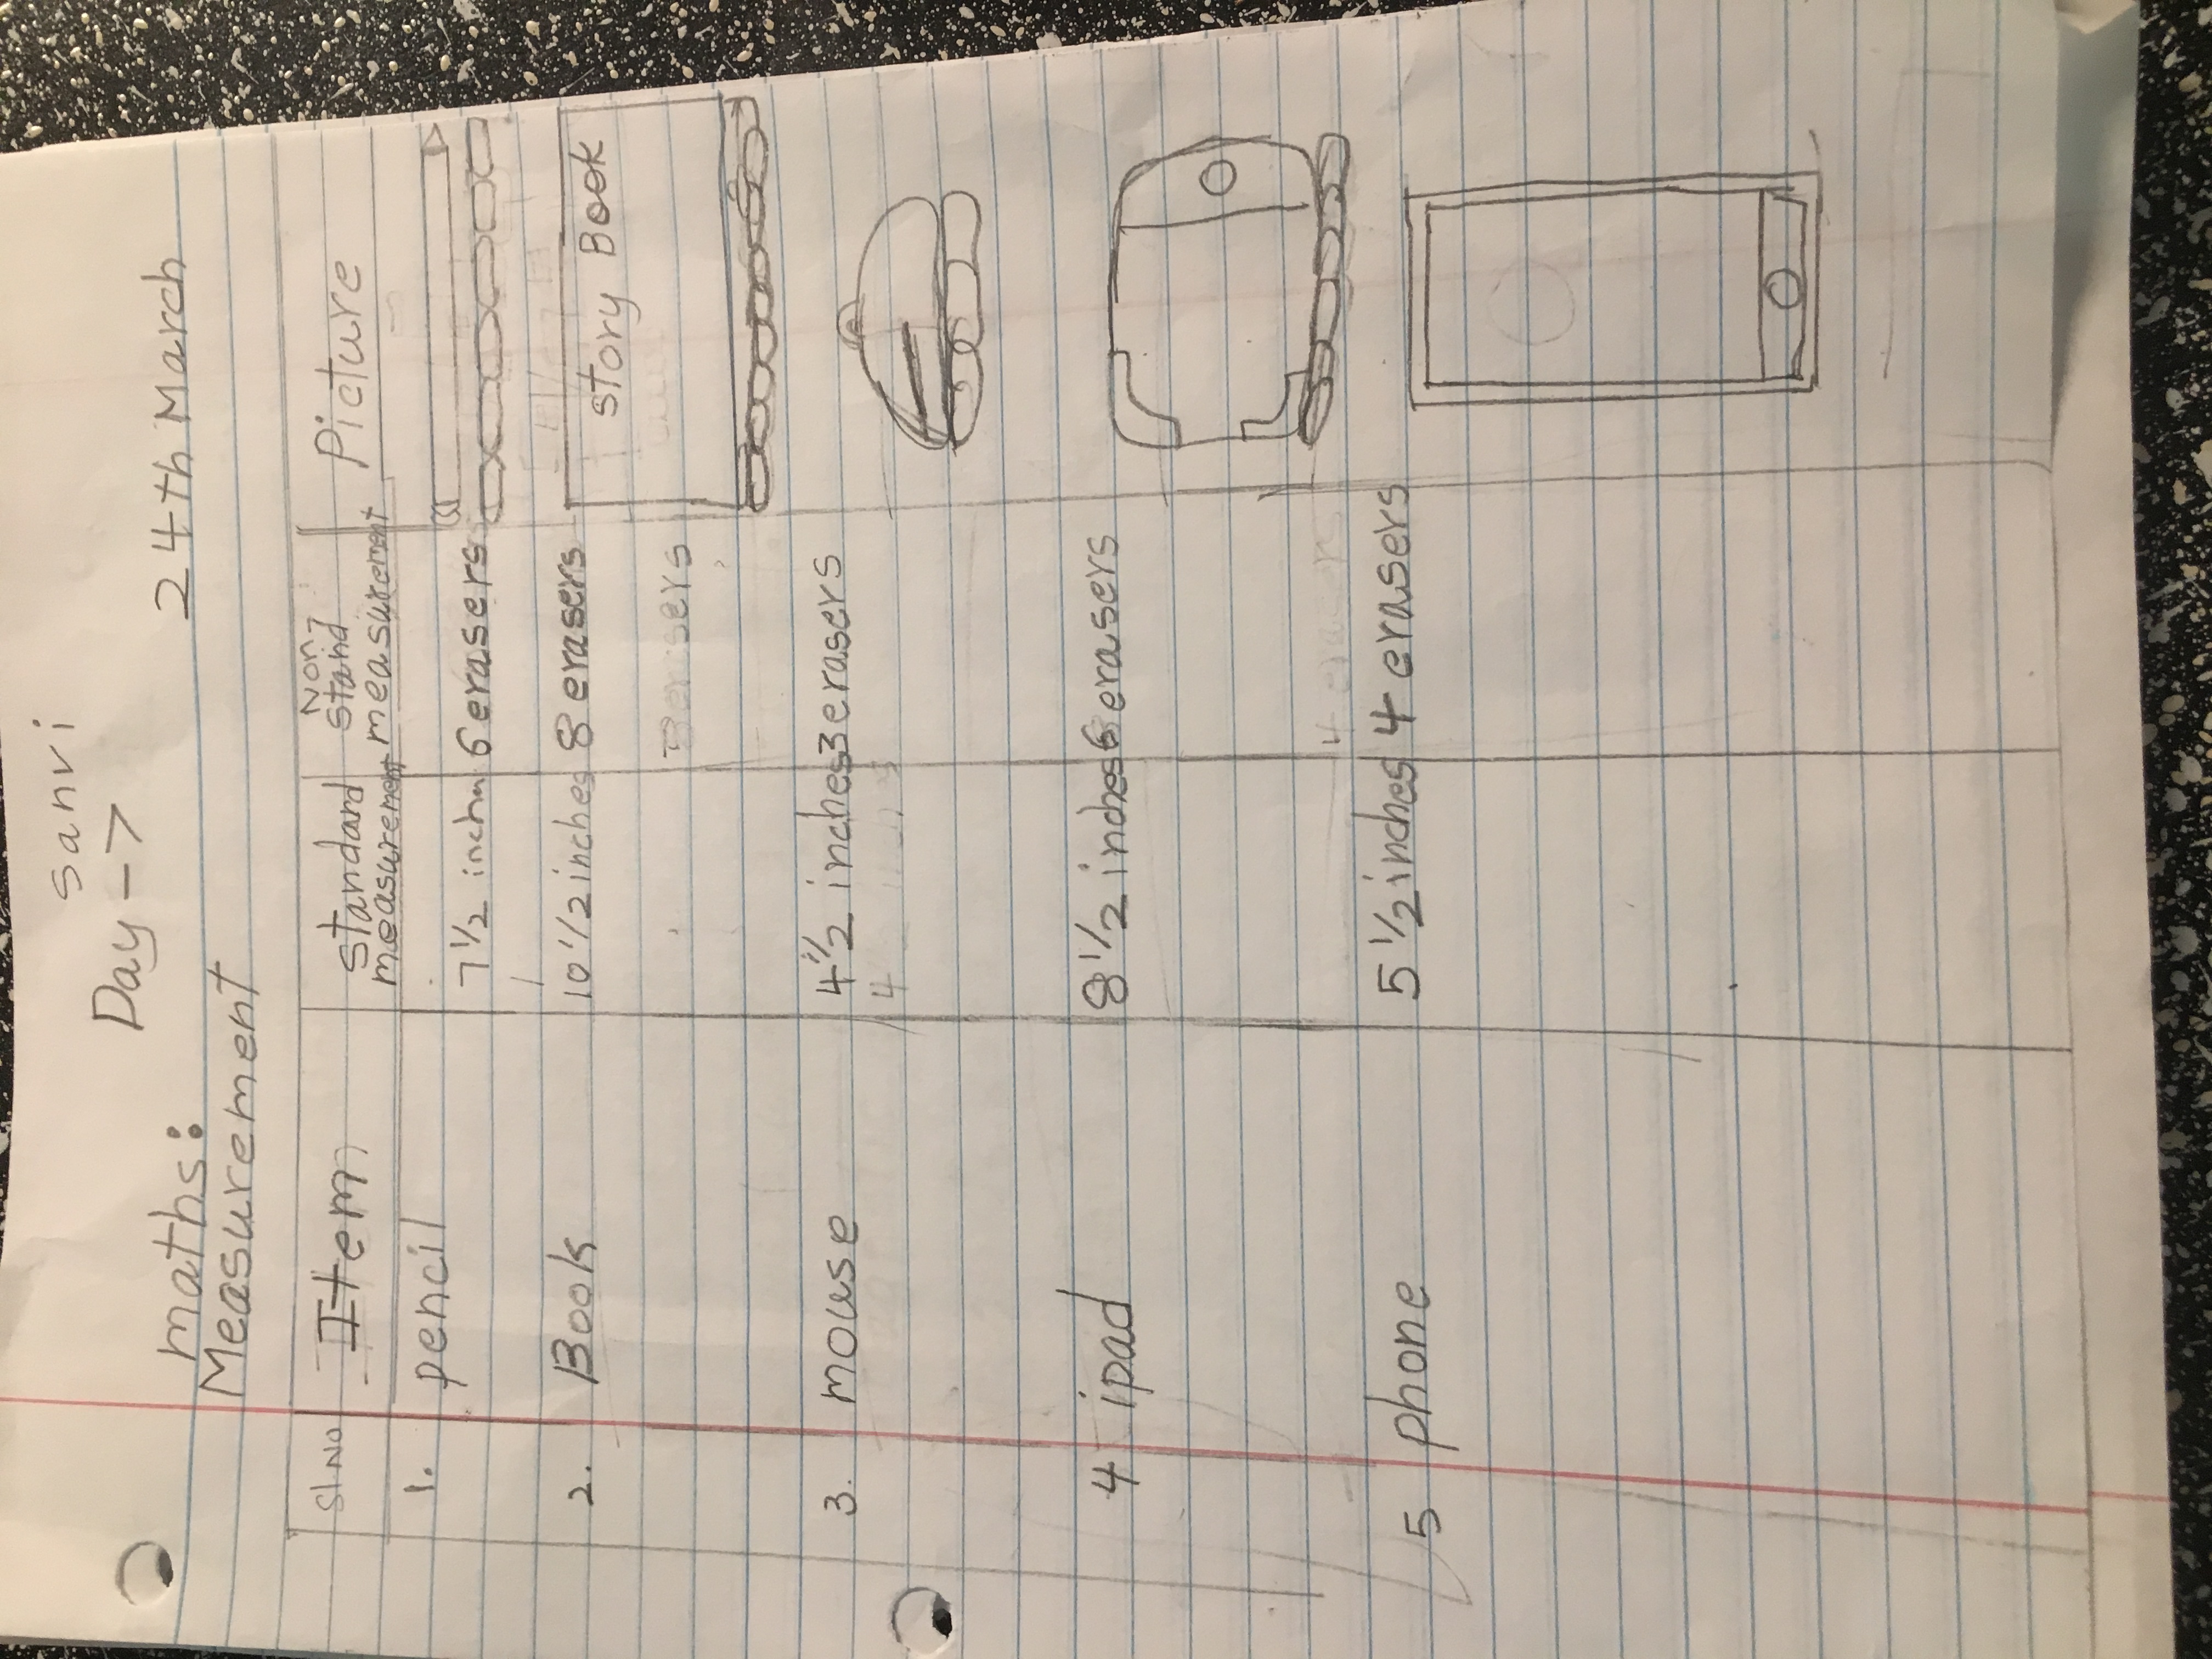 Sanvi
Day ->
maths: 24th March
Measurement
Sl No Item standard measurement Non-stand measurement Picture
1. pencil
7 1/2 6 erasers
2. Book 10 1/2 inches 8 erasers
story Book
3. mouse 4 1/2 inches 3 erasers
4 ipad 8 1/2 inches 6 erasers
4 erasers
5 phone 5 1/2 inches 4 erasers